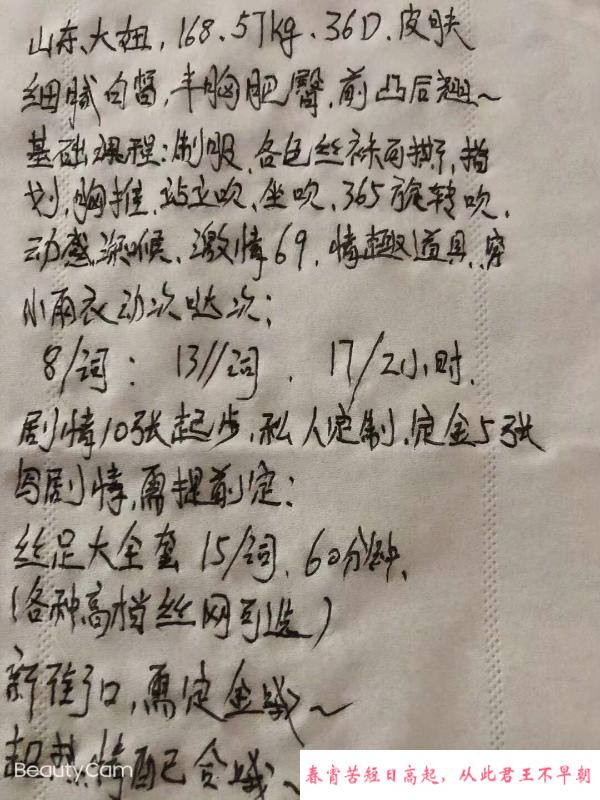 山东、大妞，168.57kg、36D.皮肤
细腻白皙，丰胸肥臀，前凸后翘～
基础课程:制服、各色丝袜可撕，指
划，胸推，站立吹、坐吹、365旋转吹、
动感深喉、激情69，情趣道具，穿
小雨衣动次哒次；
8/词： 13//词． 17/2小时．
剧情10张起步，私人定制，定金5张
写剧情，需提前定:
丝足大全套 15/词、60分钟、
(各种高档丝网可选)
新街口，需定金哦～
BeautyCam
春宵苦短日高起，从此君王不早朝